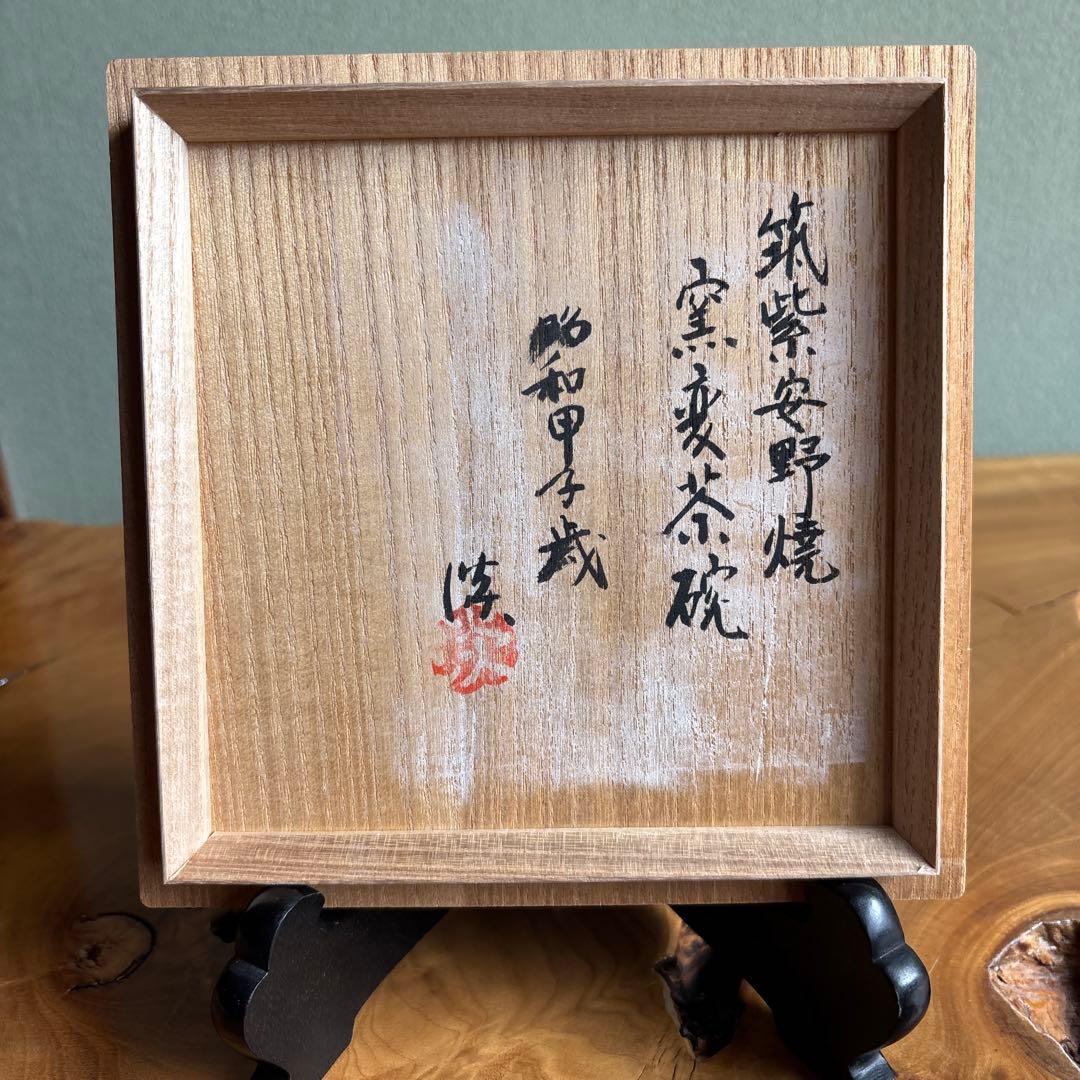 筑紫安野焼
窯変茶碗
昭和甲子歳